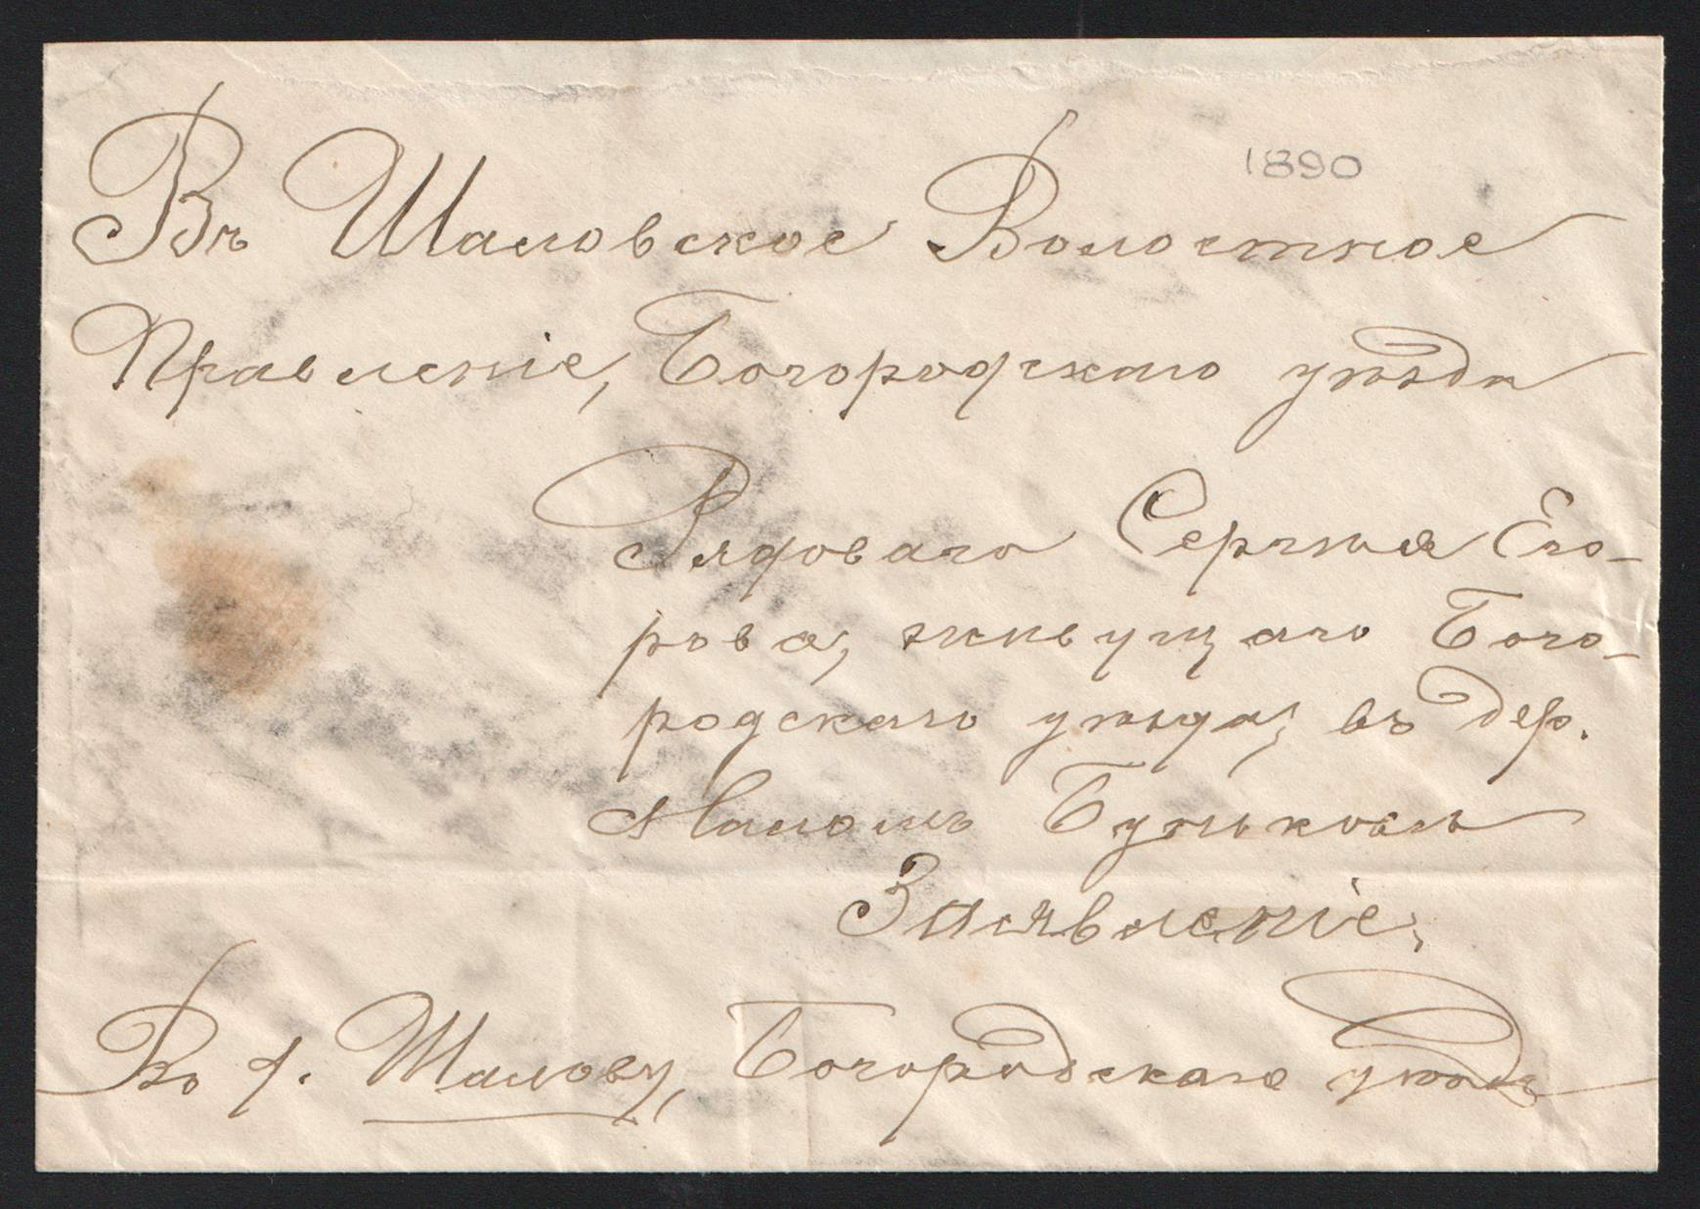 1890
Въ Шаловское Волостное
Правленіе, Богородскаго уѣзда
Рядоваго Сергѣя Его-
рова, живущаго Бого-
родскаго уѣзда, въ дер.
Маломъ Буньковѣ
Заявленіе.
Въ д. Шалову, Богородскаго уѣзда